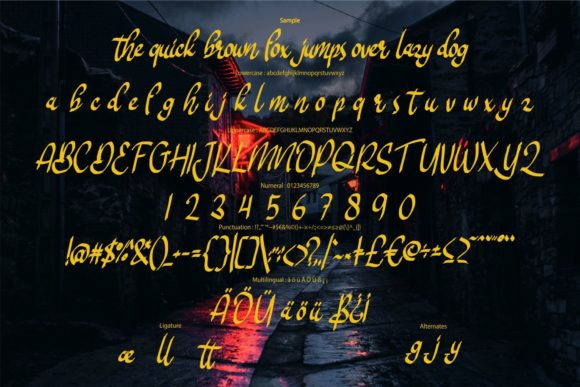 Sample
the quick brown fox jumps over lazy dog
Lowercase : abcdefghijklmnopqrstuvwxyz
a b c d e f g h i j k l m n o p q r s t u v w x y z
Uppercase : ABCDEFGHIJKLMNOPQRSTUVWXYZ
ABCDEFGHIJKLMNOPQRSTUVWXYZ
Numeral : 0123456789
1 2 3 4 5 6 7 8 9 0
Punctuation :
!@#$%^&*()_+-={}[]\
Multilingual : ä ö ü Ä Ö Ü
ÄÖÜ äöü
Ligature
Alternates
æ ll tt
g j y